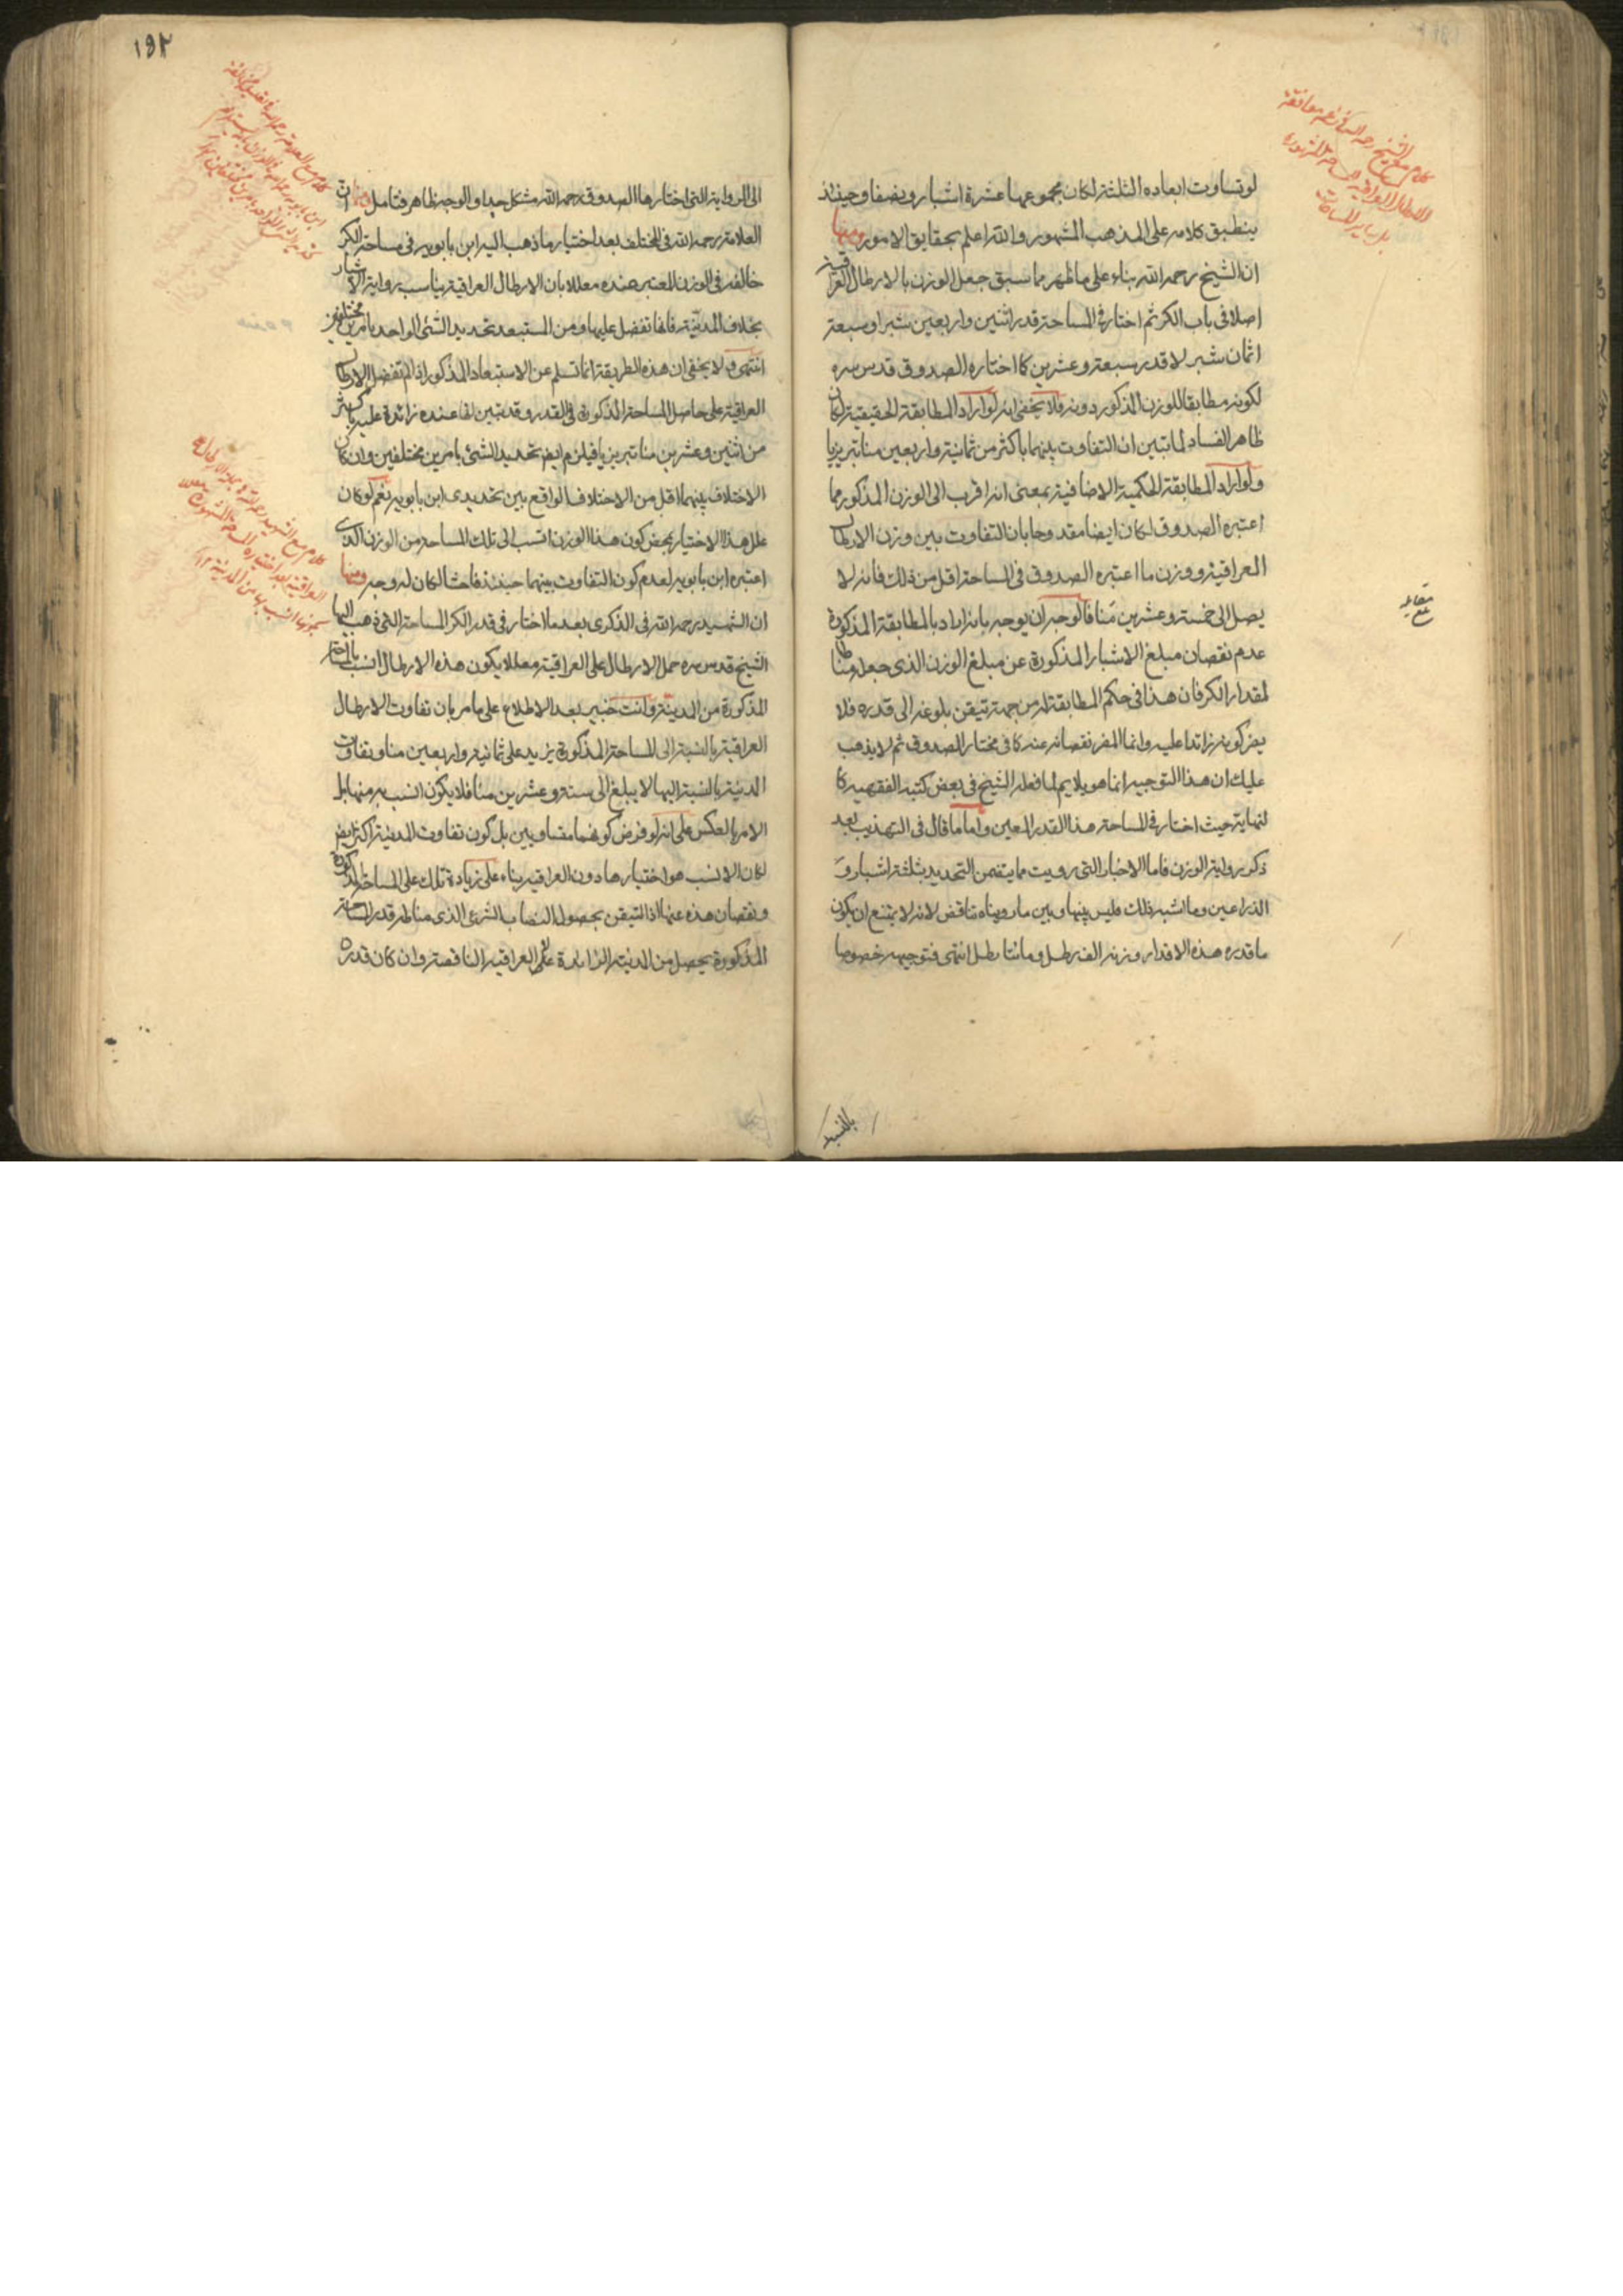 لو تساوت ابعاده الثلثة لكان مجموعها عشرة اشبار ونصفا وحينئذ
ينطبق كلامه على المذهب المشهور والله اعلم بحقايق الامور ومنها
ان الشيخ رحمه الله بناء على ما ظهر مما سبق جعل الوزن بالارطال العراقية
اصلا فى باب الكر ثم اختار فى المساحة قدر اثنين واربعين شبرا وسبعة
اثمان شبر لا قدر سبعة وعشرين كما اختاره الصدوق قدس سره
لكونه مطابقا للوزن المذكور دونه فلا يخفى انه لو اراد المطابقة الحقيقية كان
ظاهر الفساد لما تبين ان التفاوت بينهما باكثر من ثمانية واربعين منا تبريزيا
ولو اراد المطابقة الحكمية الاضافية بمعنى انه اقرب الى الوزن المذكور مما
اعتبره الصدوق لكان ايضا مقدوحا بان التفاوت بين وزن الارطال
العراقية ووزن ما اعتبره الصدوق فى المساحة اقل من ذلك فانه لا
يصل الى خمسة وعشرين منا فالوجه ان يوجه بانه اراد بالمطابقة المذكورة
عدم نقصان مبلغ الاشبار المذكورة عن مبلغ الوزن الذى جعله مناطا
لمقدار الكر فان هذا فى حكم المطابقة له من جهة تيقن بلوغه الى قدره فلا
يضر كونه زائدا عليه وانما المضر نقصانه عنه كما فى مختار الصدوق ثم لا يذهب
عليك ان هذا التوجيه انما هو يلايم لما فعله الشيخ فى بعض كتبه الفقهية كا
لنهاية حيث اختار فى المساحة هذا القدر المعين واما ما قال فى التهذيب بعد
ذكر رواية الوزن فاما الاخبار التى رويت مما يتضمن التحديد بثلثة اشبار و
الذراعين وما اشبه ذلك فليس بينها وبين ما رويناه تناقض لانه لا يمتنع ان يكون
ما قدره هذه الاقدار وزنه الف رطل ومائتا رطل انتهى فتوجيهه خصوصا
بالنسبة
كلام مع الشيخ رحمه الله فى زعمه موافقة
الارطال العراقية
مقابله
١٩٢
الى الرواية التى اختارها الصدوق رحمه الله مشكل جدا والوجه ظاهر فتامل ومنها ان
العلامة رحمه الله فى المختلف بعد اختيار ما ذهب اليه ابن بابويه فى مساحة الكر
خالفه فى الوزن المعتبر عنده معللا بان الارطال العراقية يناسب رواية الاشبار
بخلاف المدنية فانها تفضل عليها ومن المستبعد تحديد الشئ الواحد بامرين مختلفين
انتهى ولا يخفى ان هذه الطريقة انما تسلم عن الاستبعاد المذكور اذا لم تفضل الارطال
العراقية على حاصل المساحة المذكورة فى القدر وقد تبين انها عنده زائدة عليه باكثر
من اثنين وعشرين منا تبريزيا فيلزم ايضا تحديد الشئ بامرين مختلفين وان كان
الاختلاف بينهما اقل من الاختلاف الواقع بين تحديدى ابن بابويه نعم لو كان
علل هذا الاختيار بمحض كون هذا الوزن انسب الى تلك المساحة من الوزن الذى
اعتبره ابن بابويه لعدم كون التفاوت بينهما حينئذ فاحشا لكان له وجه ومنها
ان الشهيد رحمه الله فى الذكرى بعد ما اختار فى قدر الكر المساحة التى ذهب اليها
الشيخ قدس سره حمل الارطال على العراقية معللا يكون هذه الارطال انسب بالمساحة
المذكورة من المدينة وانت خبير بعد الاطلاع على ما مر بان تفاوت الارطال
العراقية بالنسبة الى المساحة المذكورة يزيد على ثمانية واربعين منا وتفاوت
المدنية بالنسبة اليها لا يبلغ الى ستة وعشرين منا فلا يكون انسب به منها بل
الامر بالعكس على انه لو فرض كونهما متساويين بل كون تفاوت المدنية اكثر ايضا
لكان الانسب هو اختيارها دون العراقية بناء على زيادة تلك على المساحة المذكورة
ونقصان هذه عنها اذ التيقن بحصول النصاب الشرعى الذى مناطه قدر المساحة
المذكورة يحصل من المدنية الزائدة على العراقية الناقصة وان كان قدره
كلام مع العلامة رحمه الله
كلام مع الشهيد رحمه الله